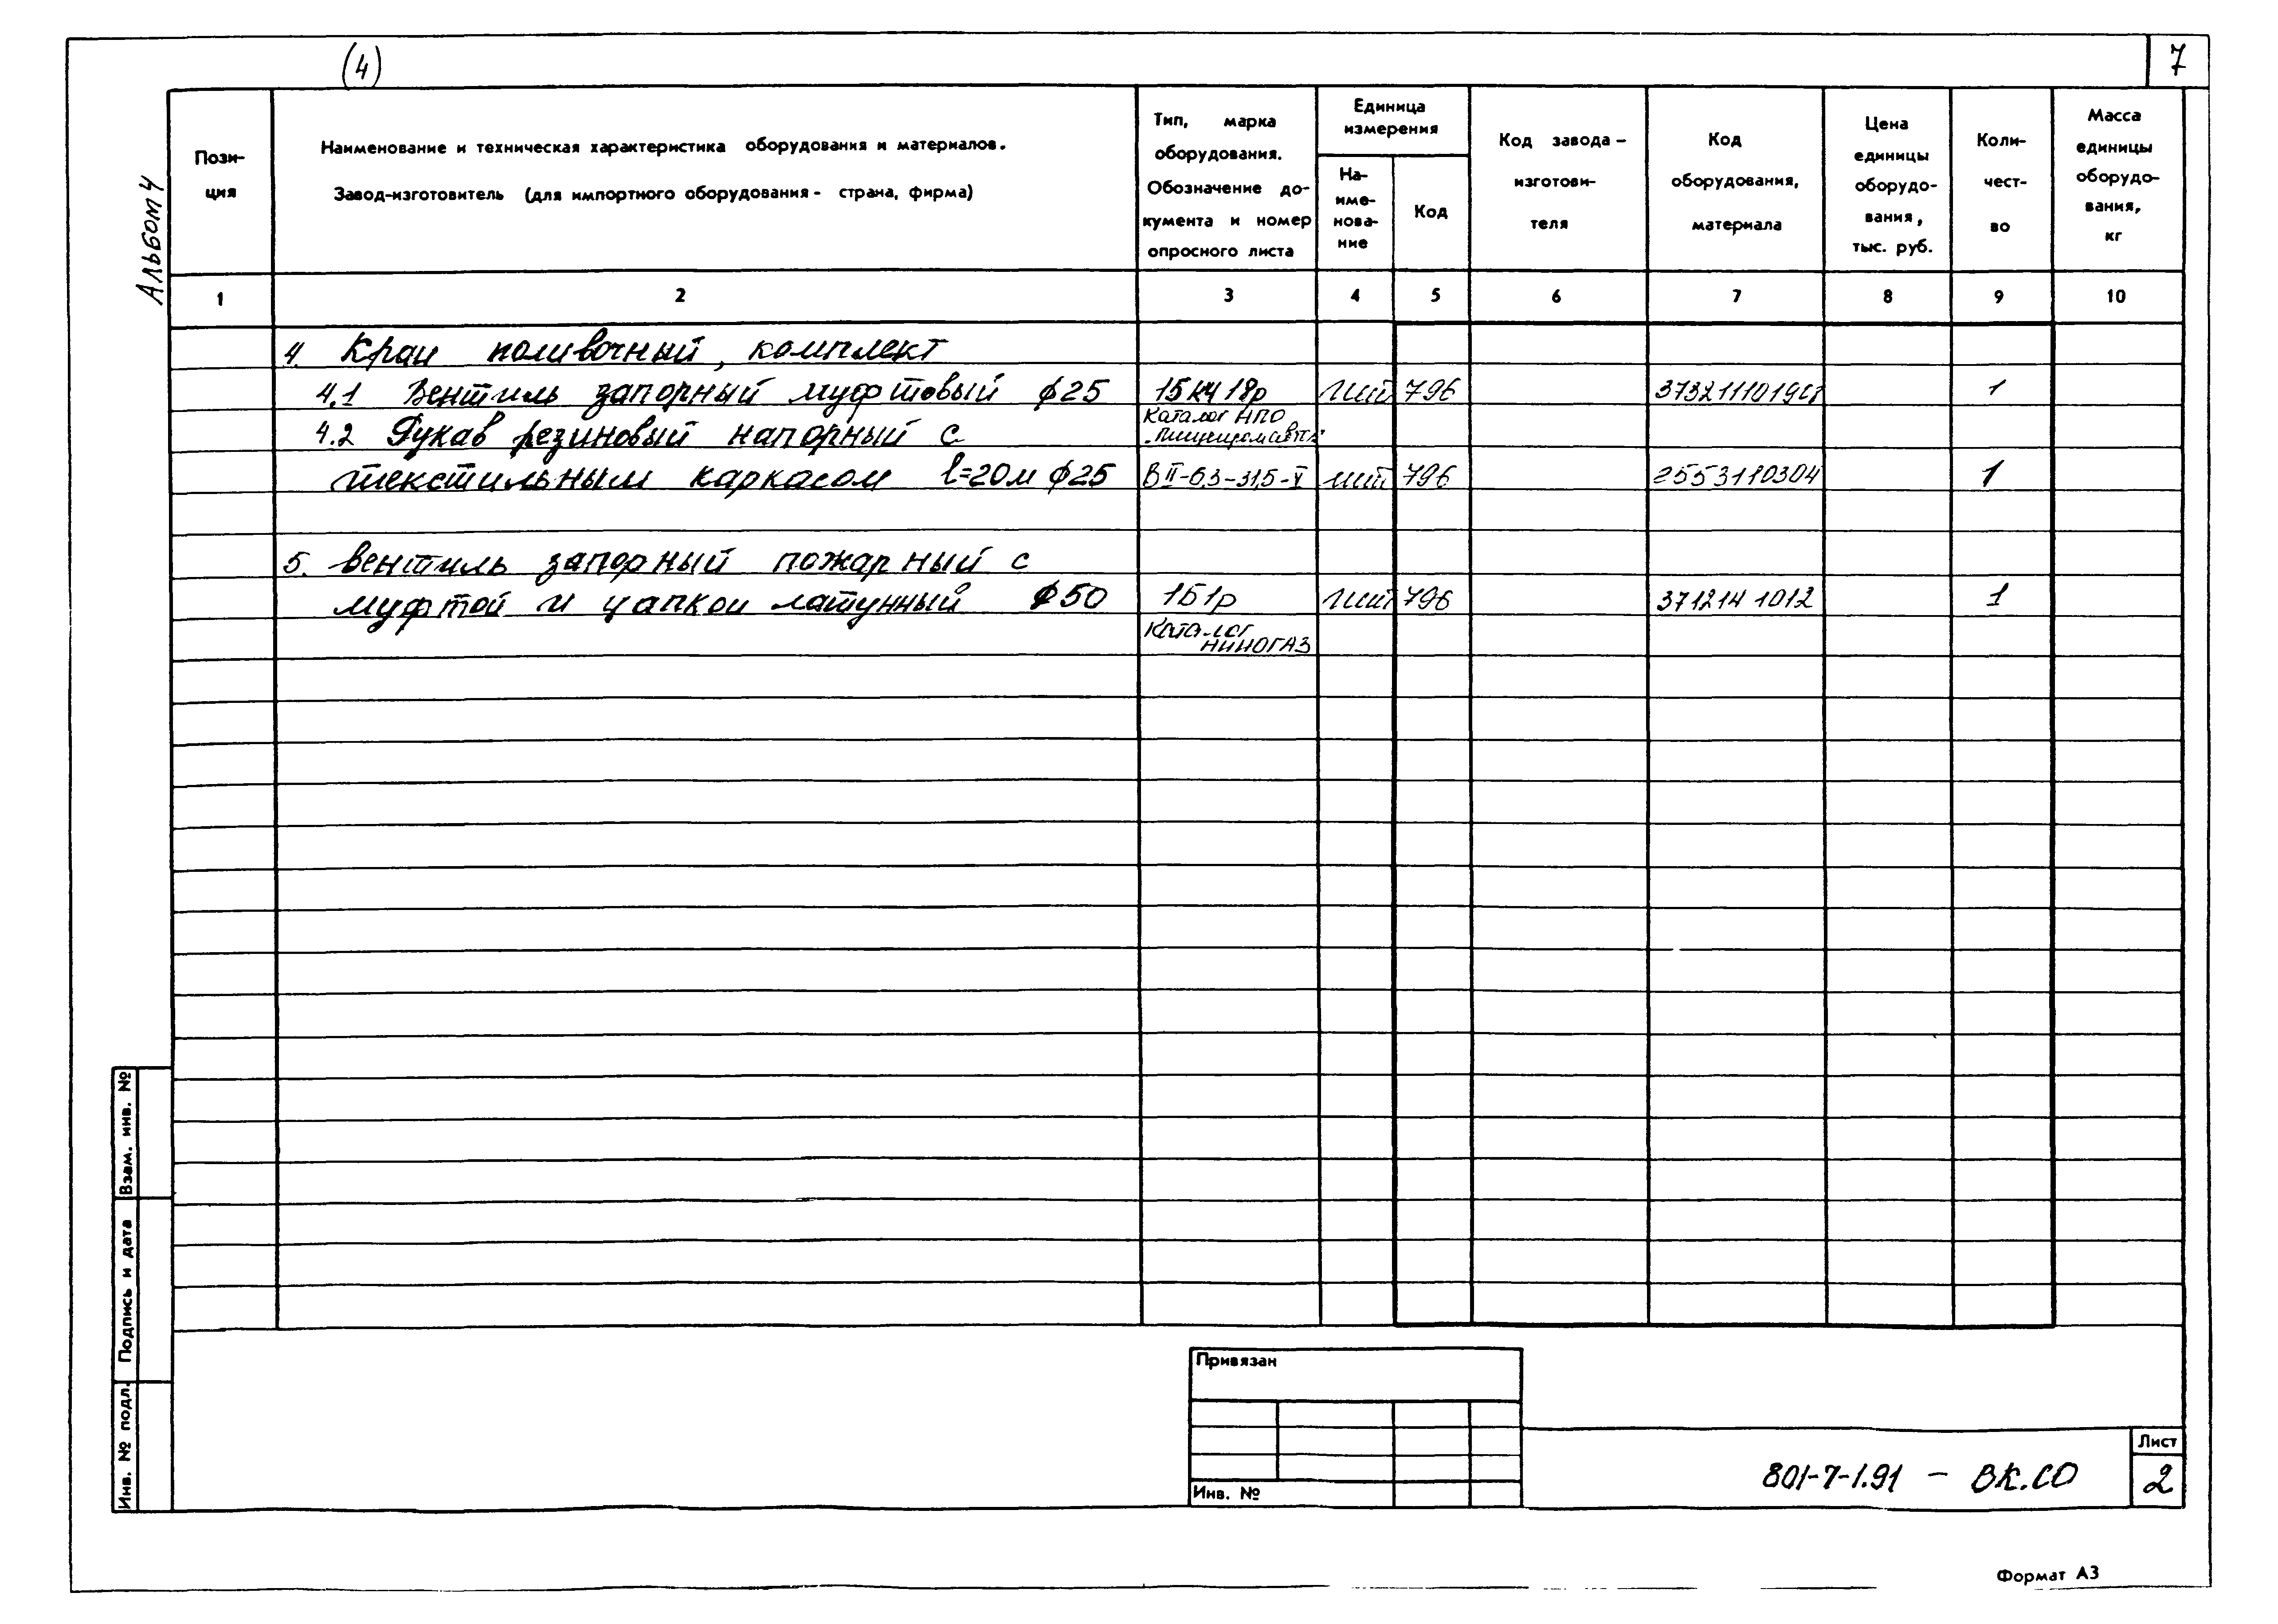 (4)
7
Альбом 4
Пози-
ция
Наименование и техническая характеристика оборудования и материалов.
Завод-изготовитель (для импортного оборудования - страна, фирма)
Тип, марка
оборудования.
Обозначение до-
кумента и номер
опросного листа
Единица
измерения
На-
име-
нова-
ние
Код
Код завода –
изготови-
теля
Код
оборудования,
материала
Цена
единицы
оборудо-
вания,
тыс. руб.
Коли-
чест-
во
Масса
единицы
оборудо-
вания,
кг
1 2 3 4 5 6 7 8 9 10
4. Кран поливочный, комплект
4.1 Вентиль запорный муфтовый ϕ25 15кч18р шт 796 1
Каталог НПО
4.2 Рукав резиновый напорный с
текстильным каркасом l=20м ϕ25 ВII-6,3-31,5-У шт 796 2553110304 1
5. Вентиль запорный пожарный с
муфтой и цапкой латунный ϕ50 1Б1р шт 796 371214 1012 1
Каталог
Взам. инв. №
Подпись и дата
Инв. № подл.
Привязан
Инв. №
801-7-1.91 – ВК.СО
Лист
2
Формат А3